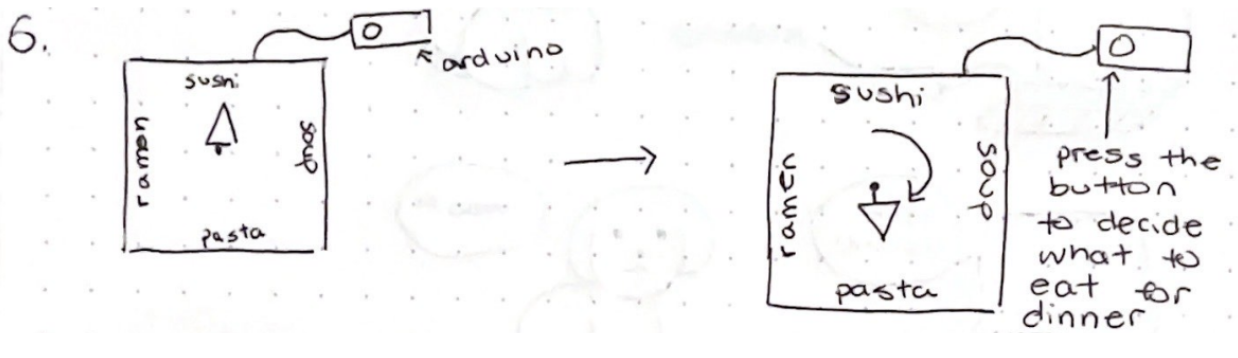 6.
arduino
sushi
ramen
soup
pasta
sushi
ramen
soup
pasta
press the
button
to decide
what to
eat for
dinner